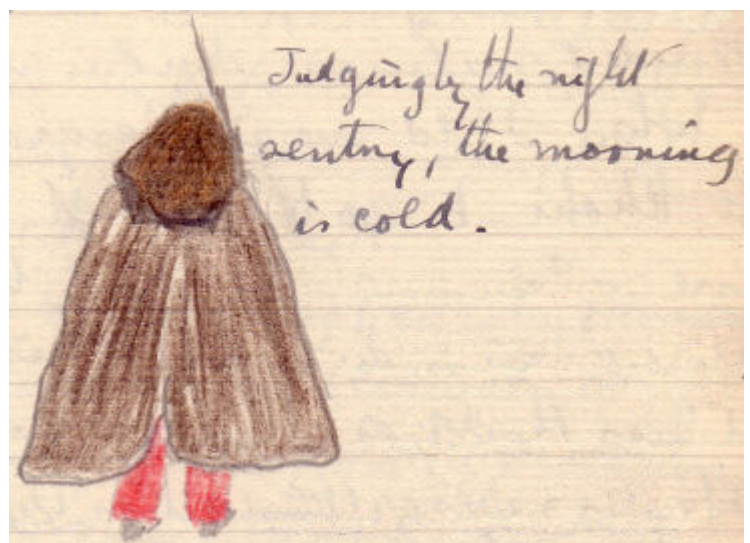 Judging by the night
sentry, the morning
is cold.